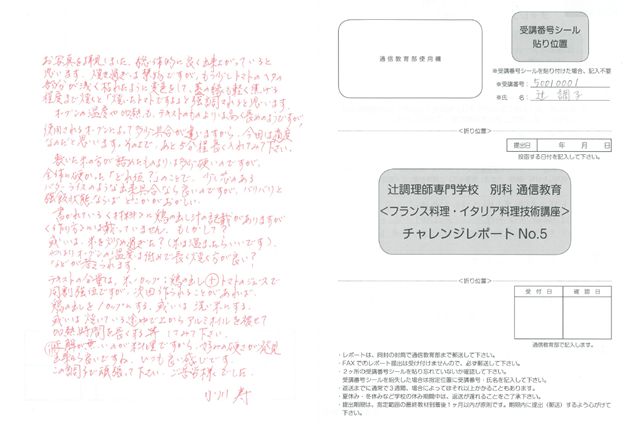 お写真を拝見しました。総体的に良く出来上がっていると
思います。焼き過ぎは禁物ですが、もう少しトマトのヘタの
部分が浅く枯れたように変色をして、
程度まで焼くと「焼いたトマトですよ」と強調されると思います。
オーブンの温度や時間も、テキストのものよりは高く長めのようですが、
使用されるオーブンによって多少具合が違いますから、今回は適度
なのだと思います。そのままで、あと5分程長く入れてみて下さい。
全体に硬かった「どれ位?」のことで、少し芯のある
バターライスのような出来具合なら良いのですが、バリバリと
書かれていく材料に鶏の出し汁の記載がありますが
作り方には載っていません。もしかして?
或いは、米を炒め過ぎた?
やはりオーブンの温度は低めで長く焼く方が良い?
などが考えられます。
テキストの分量は、米1カップ:鶏の出し+トマトのジュースで
同割強位ですが、次回作られることがあれば、
鶏の出しを1カップにする。或いは洗い米にする。
或いは焼いている途中で上からアルミホイルを被せて
加熱時間を長くする等してみて下さい。
正解が無いのが料理ですから、
この調子で頑張って下さい。ご苦労様でした。
小川 寿
通信教育部使用欄
受講番号シール
貼り位置
※受講番号シールを貼り付けた場合、記入不要
※受講番号: 50010001
※氏 名: 辻 調子
<折り位置>
提出日 年 月 日
投函する日付を記入して下さい。
辻調理師専門学校 別科 通信教育
<フランス料理・イタリア料理技術講座>
チャレンジレポート No.5
<折り位置>
受 付 日 確 認 日
通信教育部で記入します。
・レポートは、同封の封筒で通信教育部まで郵送して下さい。
・FAXでのレポート提出は受け付けませんので、必ず郵送して下さい。
・2ヶ所の受講番号シールを貼り忘れていないか確認して下さい。
受講番号シールを紛失した場合は指定位置に受講番号・氏名を記入して下さい。
・返送までに通常で3週間、場合によってはそれ以上かかることもあります。
・夏休み・冬休みなど学校の休み期間中は、返送が遅れることをご了承下さい。
・提出期限は、指定範囲の最終教材到着後1ヶ月以内が原則です。期限内に提出(郵送)するよう心がけて
下さい。